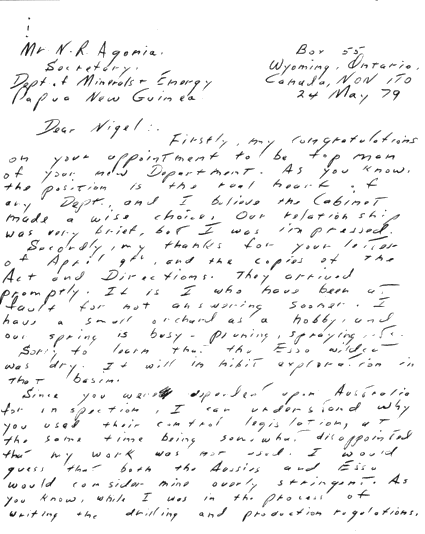 Mr N.R. Agonia.
Secretary.
Dept. of Minerals & Energy
Papua New Guinea
Box 55
Wyoming, Ontario.
Canada, N0N 1T0
24 May 79
Dear Nigel:.
Firstly, my congratulations
on your appointment to be top man
of your new Department. As you know,
the position is the real heart of
any Dept. and I believe the Cabinet
made a wise choice. Our relationship
was very brief, but I was impressed.
Secondly, my thanks for your letter
of April 9th, and the copies of the
Act and Directions. They arrived
promptly. It is I who have been at
fault for not answering sooner. I
have a small orchard as a hobby, and
our spring is busy - pruning, spraying, etc.
Sorry to learn that the Esso wildcat
was dry. It will inhibit exploration in
that basin.
Since you were dependent upon Australia
for inspection, I can understand why
you used their control legislation, at
the same time being somewhat disappointed
that my work was not used. I would
guess that both the Aussies and Esso
would consider mine overly stringent. As
you know, while I was in the process of
writing the drilling and production regulations,